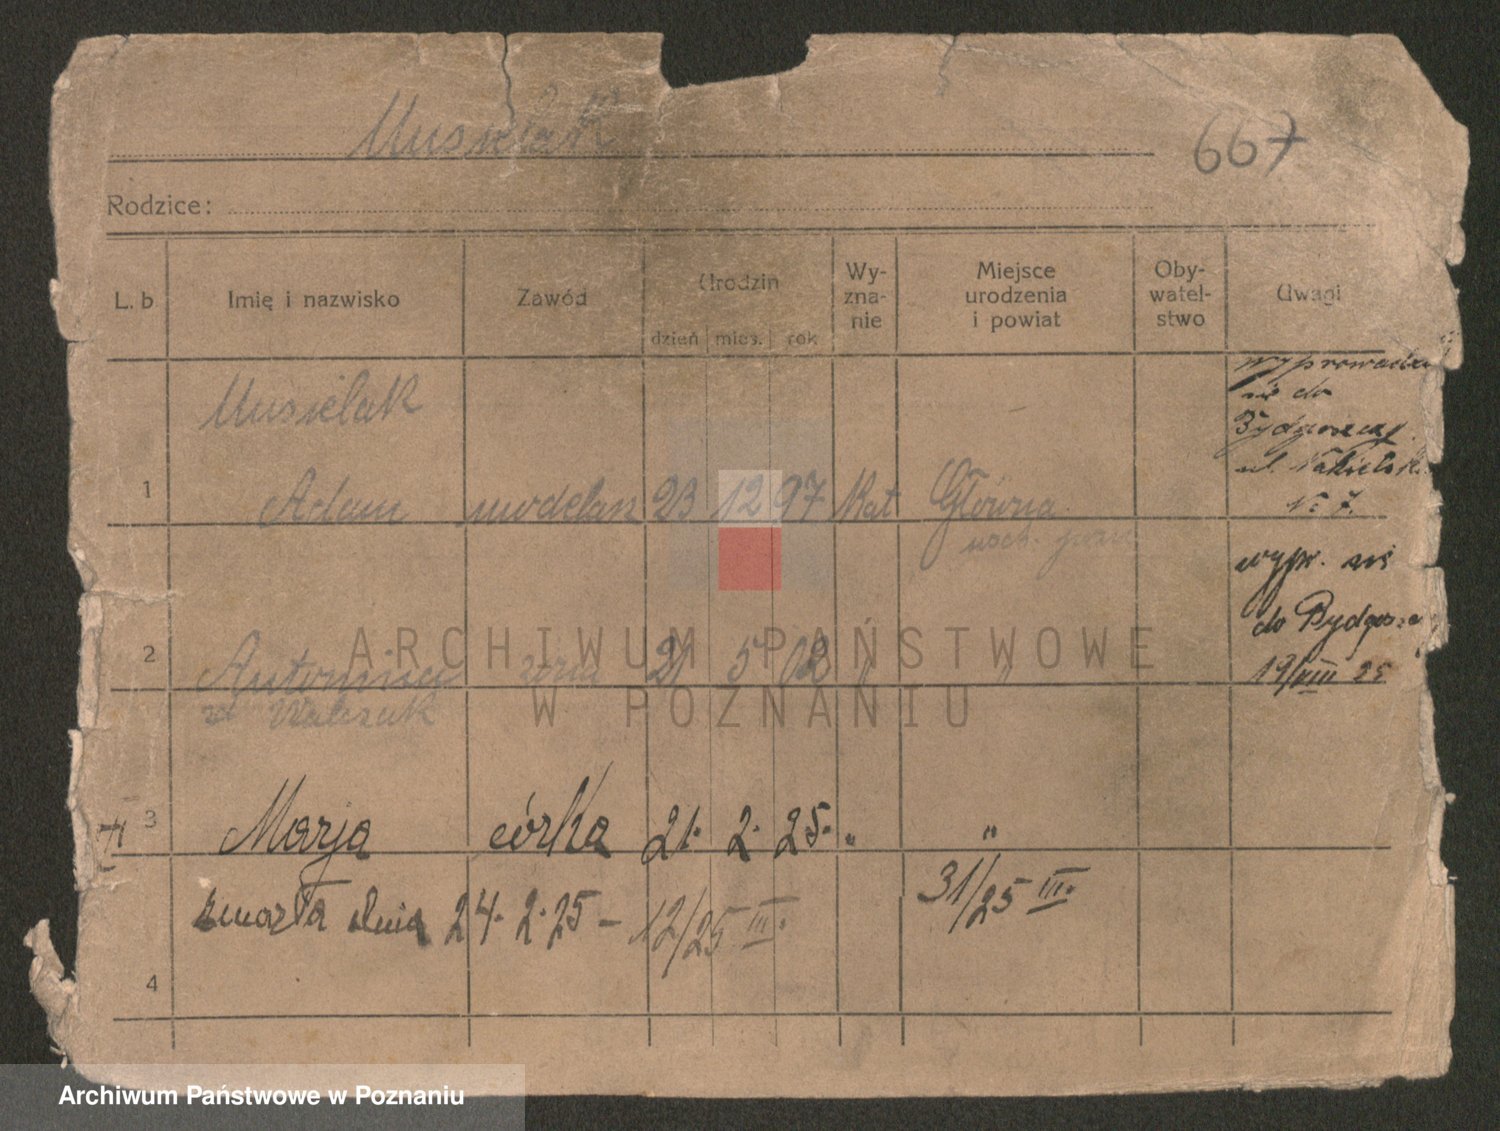 Musielak
667
Rodzice:
L. b
Imię i nazwisko
Zawód
Urodzin
dzień mies. rok
Wy-
zna-
nie
Miejsce
urodzenia
i powiat
Oby-
watel-
stwo
Uwagi
Musielak
1 Adam modelarz 23 12 97 Kat Główna
wsch. pozn
wyprowadza
się do
Bydgoszczy
ul. Nakielska
Nr 7.
2 Antonina żona 21 5 02 " "
zd Walczak
wypr. się
do Bydgoszcz
19/XIII 25
3 Marja córka 21. 2. 25. " "
zmarła dnia 24. 2. 25 – 12/25 III. 31/25 III.
4
ARCHIWUM PAŃSTWOWE
W POZNANIU
Archiwum Państwowe w Poznaniu